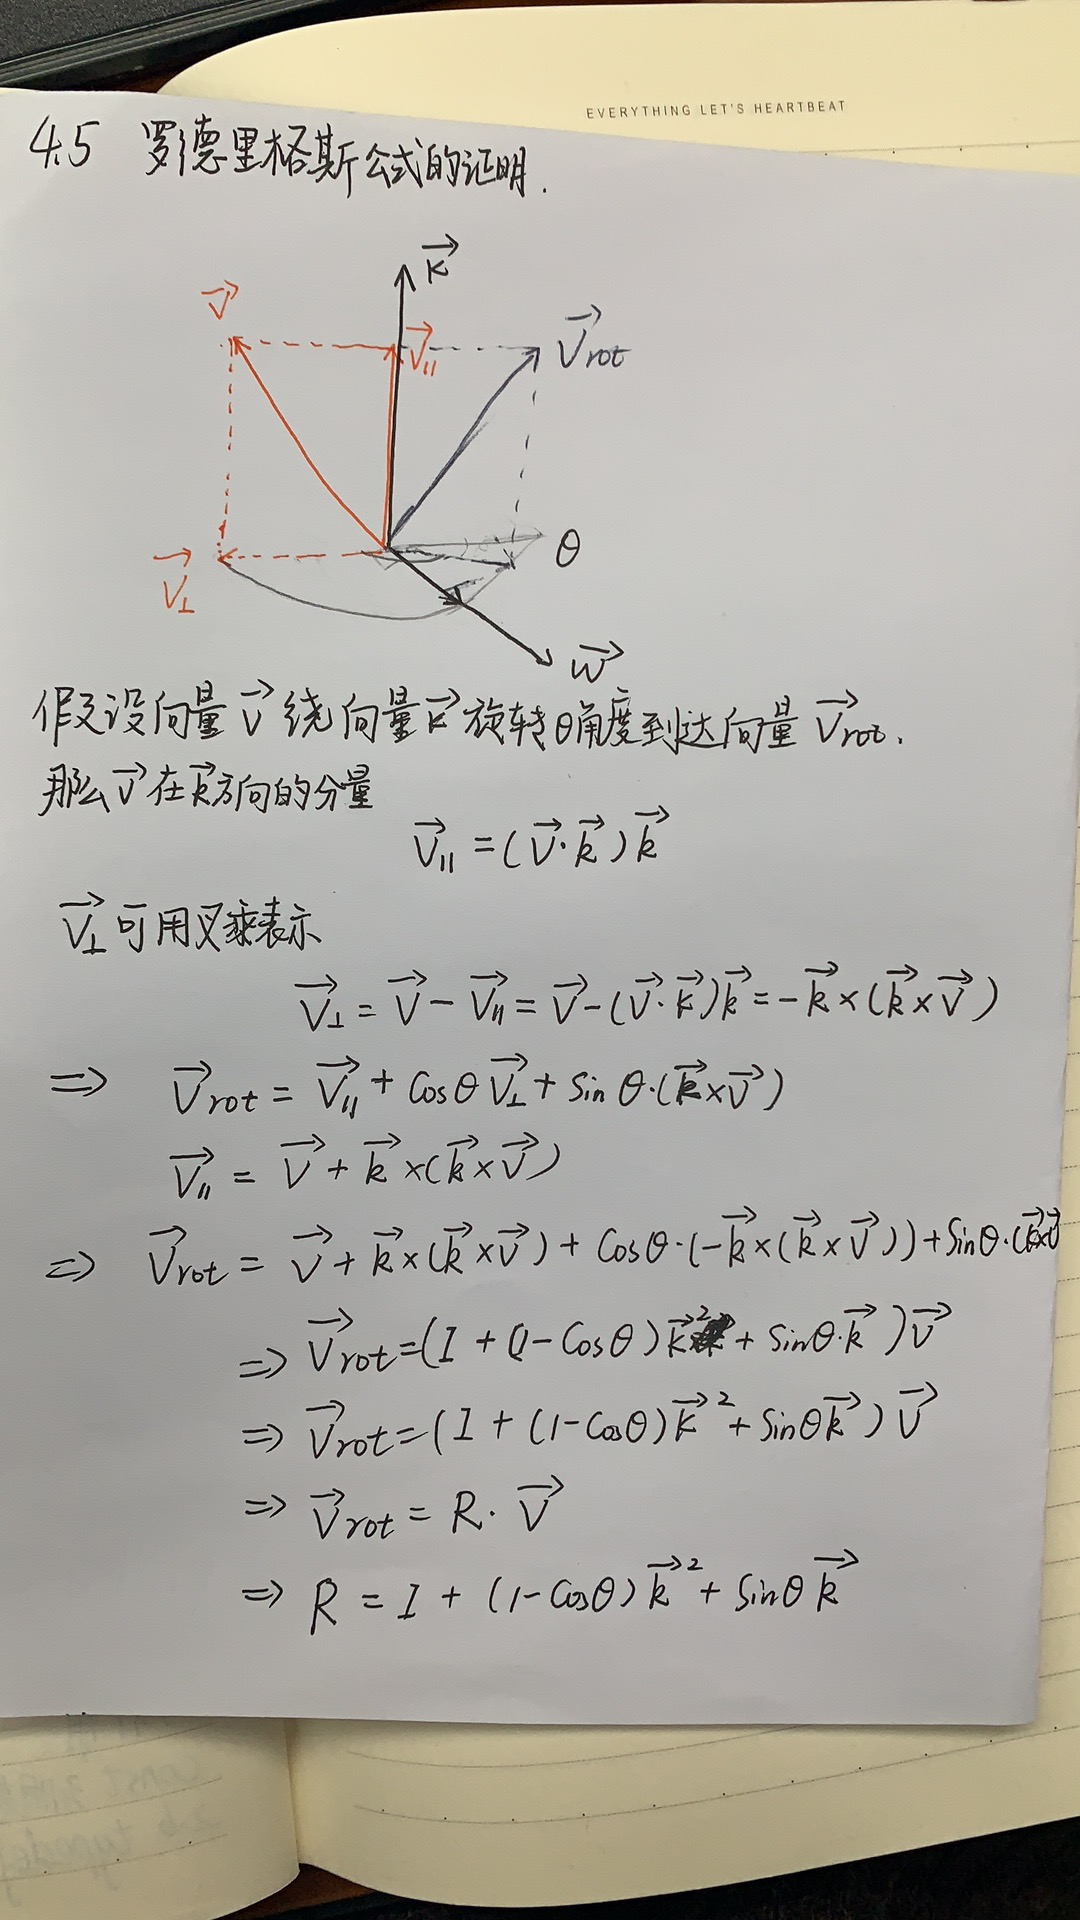 EVERYTHING LET'S HEARTBEAT
4.5 罗德里格斯公式的证明.
k⃗
v⃗
v⃗∥
v⃗rot
v⃗⊥
θ
w⃗
假设向量 v⃗ 绕向量 k⃗ 旋转θ角度到达向量 v⃗rot.
那么 v⃗ 在 k⃗ 方向的分量
v⃗∥ = (v⃗·k⃗)k⃗
v⃗⊥ 可用叉乘表示
v⃗⊥ = v⃗ - v⃗∥ = v⃗ - (v⃗·k⃗)k⃗ = -k⃗×(k⃗×v⃗)
⇒ v⃗rot = v⃗∥ + cosθ v⃗⊥ + sinθ·(k⃗×v⃗)
v⃗∥ = v⃗ + k⃗×(k⃗×v⃗)
⇒ v⃗rot = v⃗ + k⃗×(k⃗×v⃗) + cosθ·(-k⃗×(k⃗×v⃗)) + sinθ·(k⃗×v⃗
⇒ v⃗rot = (I + (1-cosθ)k⃗² + sinθ·k⃗)v⃗
⇒ v⃗rot = (I + (1-cosθ)k⃗² + sinθk⃗)v⃗
⇒ v⃗rot = R·v⃗
⇒ R = I + (1-cosθ)k⃗² + sinθk⃗